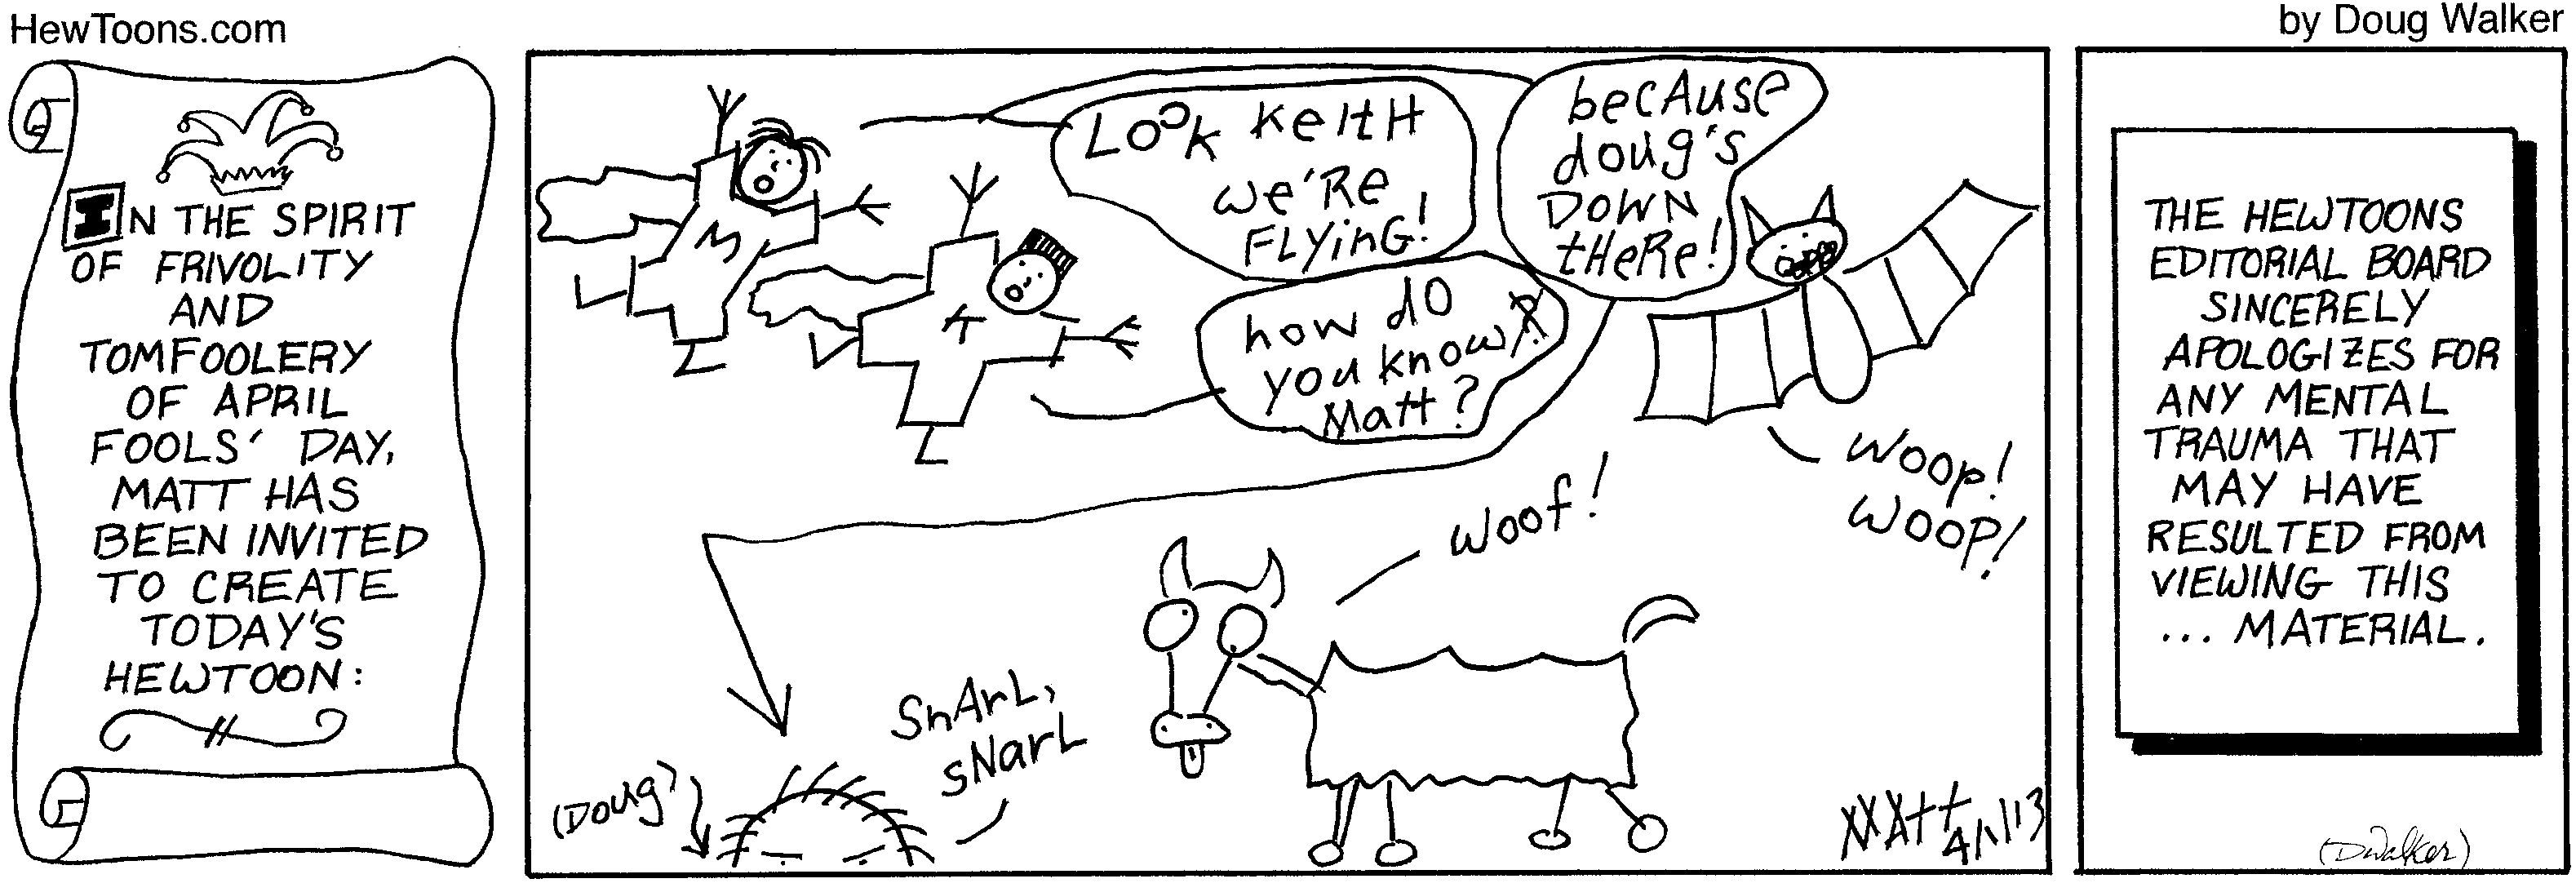 HewToons.com
by Doug Walker
IN THE SPIRIT
OF FRIVOLITY
AND
TOMFOOLERY
OF APRIL
FOOLS' DAY,
MATT HAS
BEEN INVITED
TO CREATE
TODAY'S
HEWTOON:
LOOk KeItH
we'Re
FLYinG!
how dO
you know
Matt?
becAuse
doug's
DOWN
tHeRe!
woop!
WOOP!
woof!
SnArL,
sNarL
(Doug)
MAtt
4/1/13
THE HEWTOONS
EDITORIAL BOARD
SINCERELY
APOLOGIZES FOR
ANY MENTAL
TRAUMA THAT
MAY HAVE
RESULTED FROM
VIEWING THIS
... MATERIAL.
(DWalker)
M
K